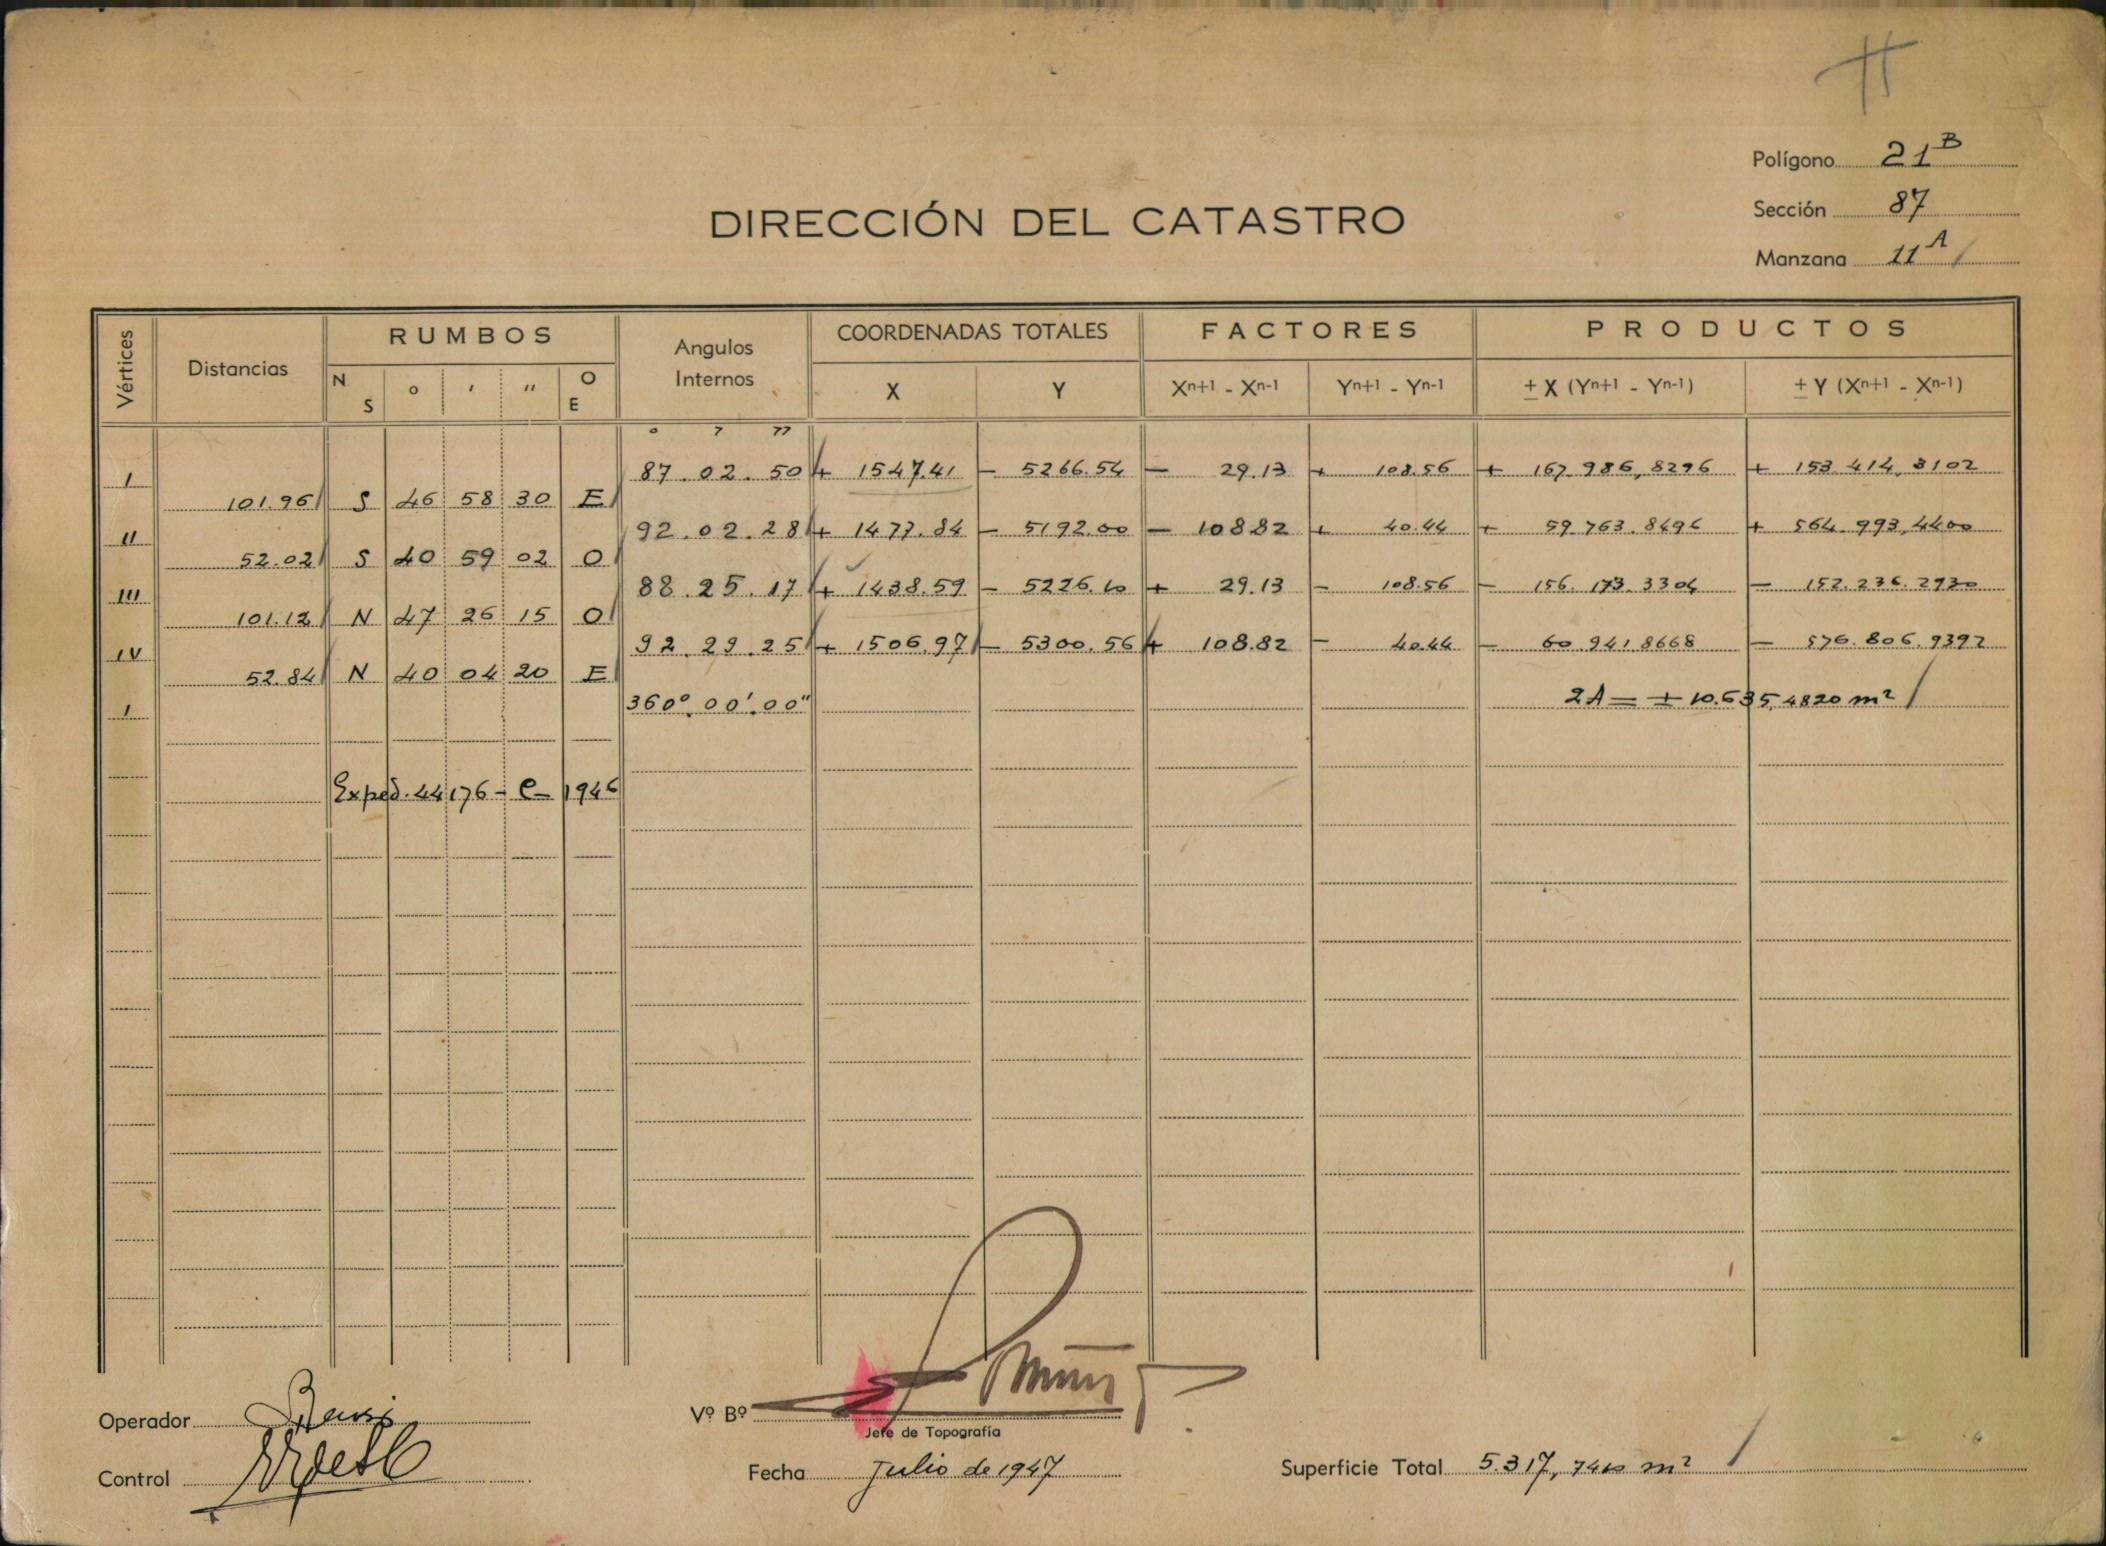 Polígono 21 B
Sección 87
DIRECCIÓN DEL CATASTRO
Manzana 11 A
Vértices Distancias RUMBOS Angulos Internos COORDENADAS TOTALES FACTORES PRODUCTOS
N S o ' " O E X Y Xn+1 - Xn-1 Yn+1 - Yn-1 ± X (Yn+1 - Yn-1) ± Y (Xn+1 - Xn-1)
° ' "
I 87.02.50 + 1547.41 - 5266.54 - 29.13 + 108.56 + 167.986,8296 + 153.414,3102
101.96 S 46 58 30 E
II 92.02.28 + 1477.84 - 5192.00 - 108.82 + 40.44 + 59.763.8496 + 564.993,4400
52.02 S 40 59 02 O
III 88.25.17 + 1438.59 - 5226.10 + 29.13 - 108.56 - 156.173.3304 - 152.236.2930
101.12 N 47 26 15 O
IV 92.29.25 + 1506.97 - 5300.56 + 108.82 - 40.44 - 60.941.8668 - 576.806.9392
52.84 N 40 04 20 E
I 360°.00'.00" 2A = ± 10.635.4820 m²
Exped. 44176 - C - 1946
Operador
Vº Bº
Jefe de Topografía
Control
Fecha Julio de 1947
Superficie Total 5.317,7410 m²